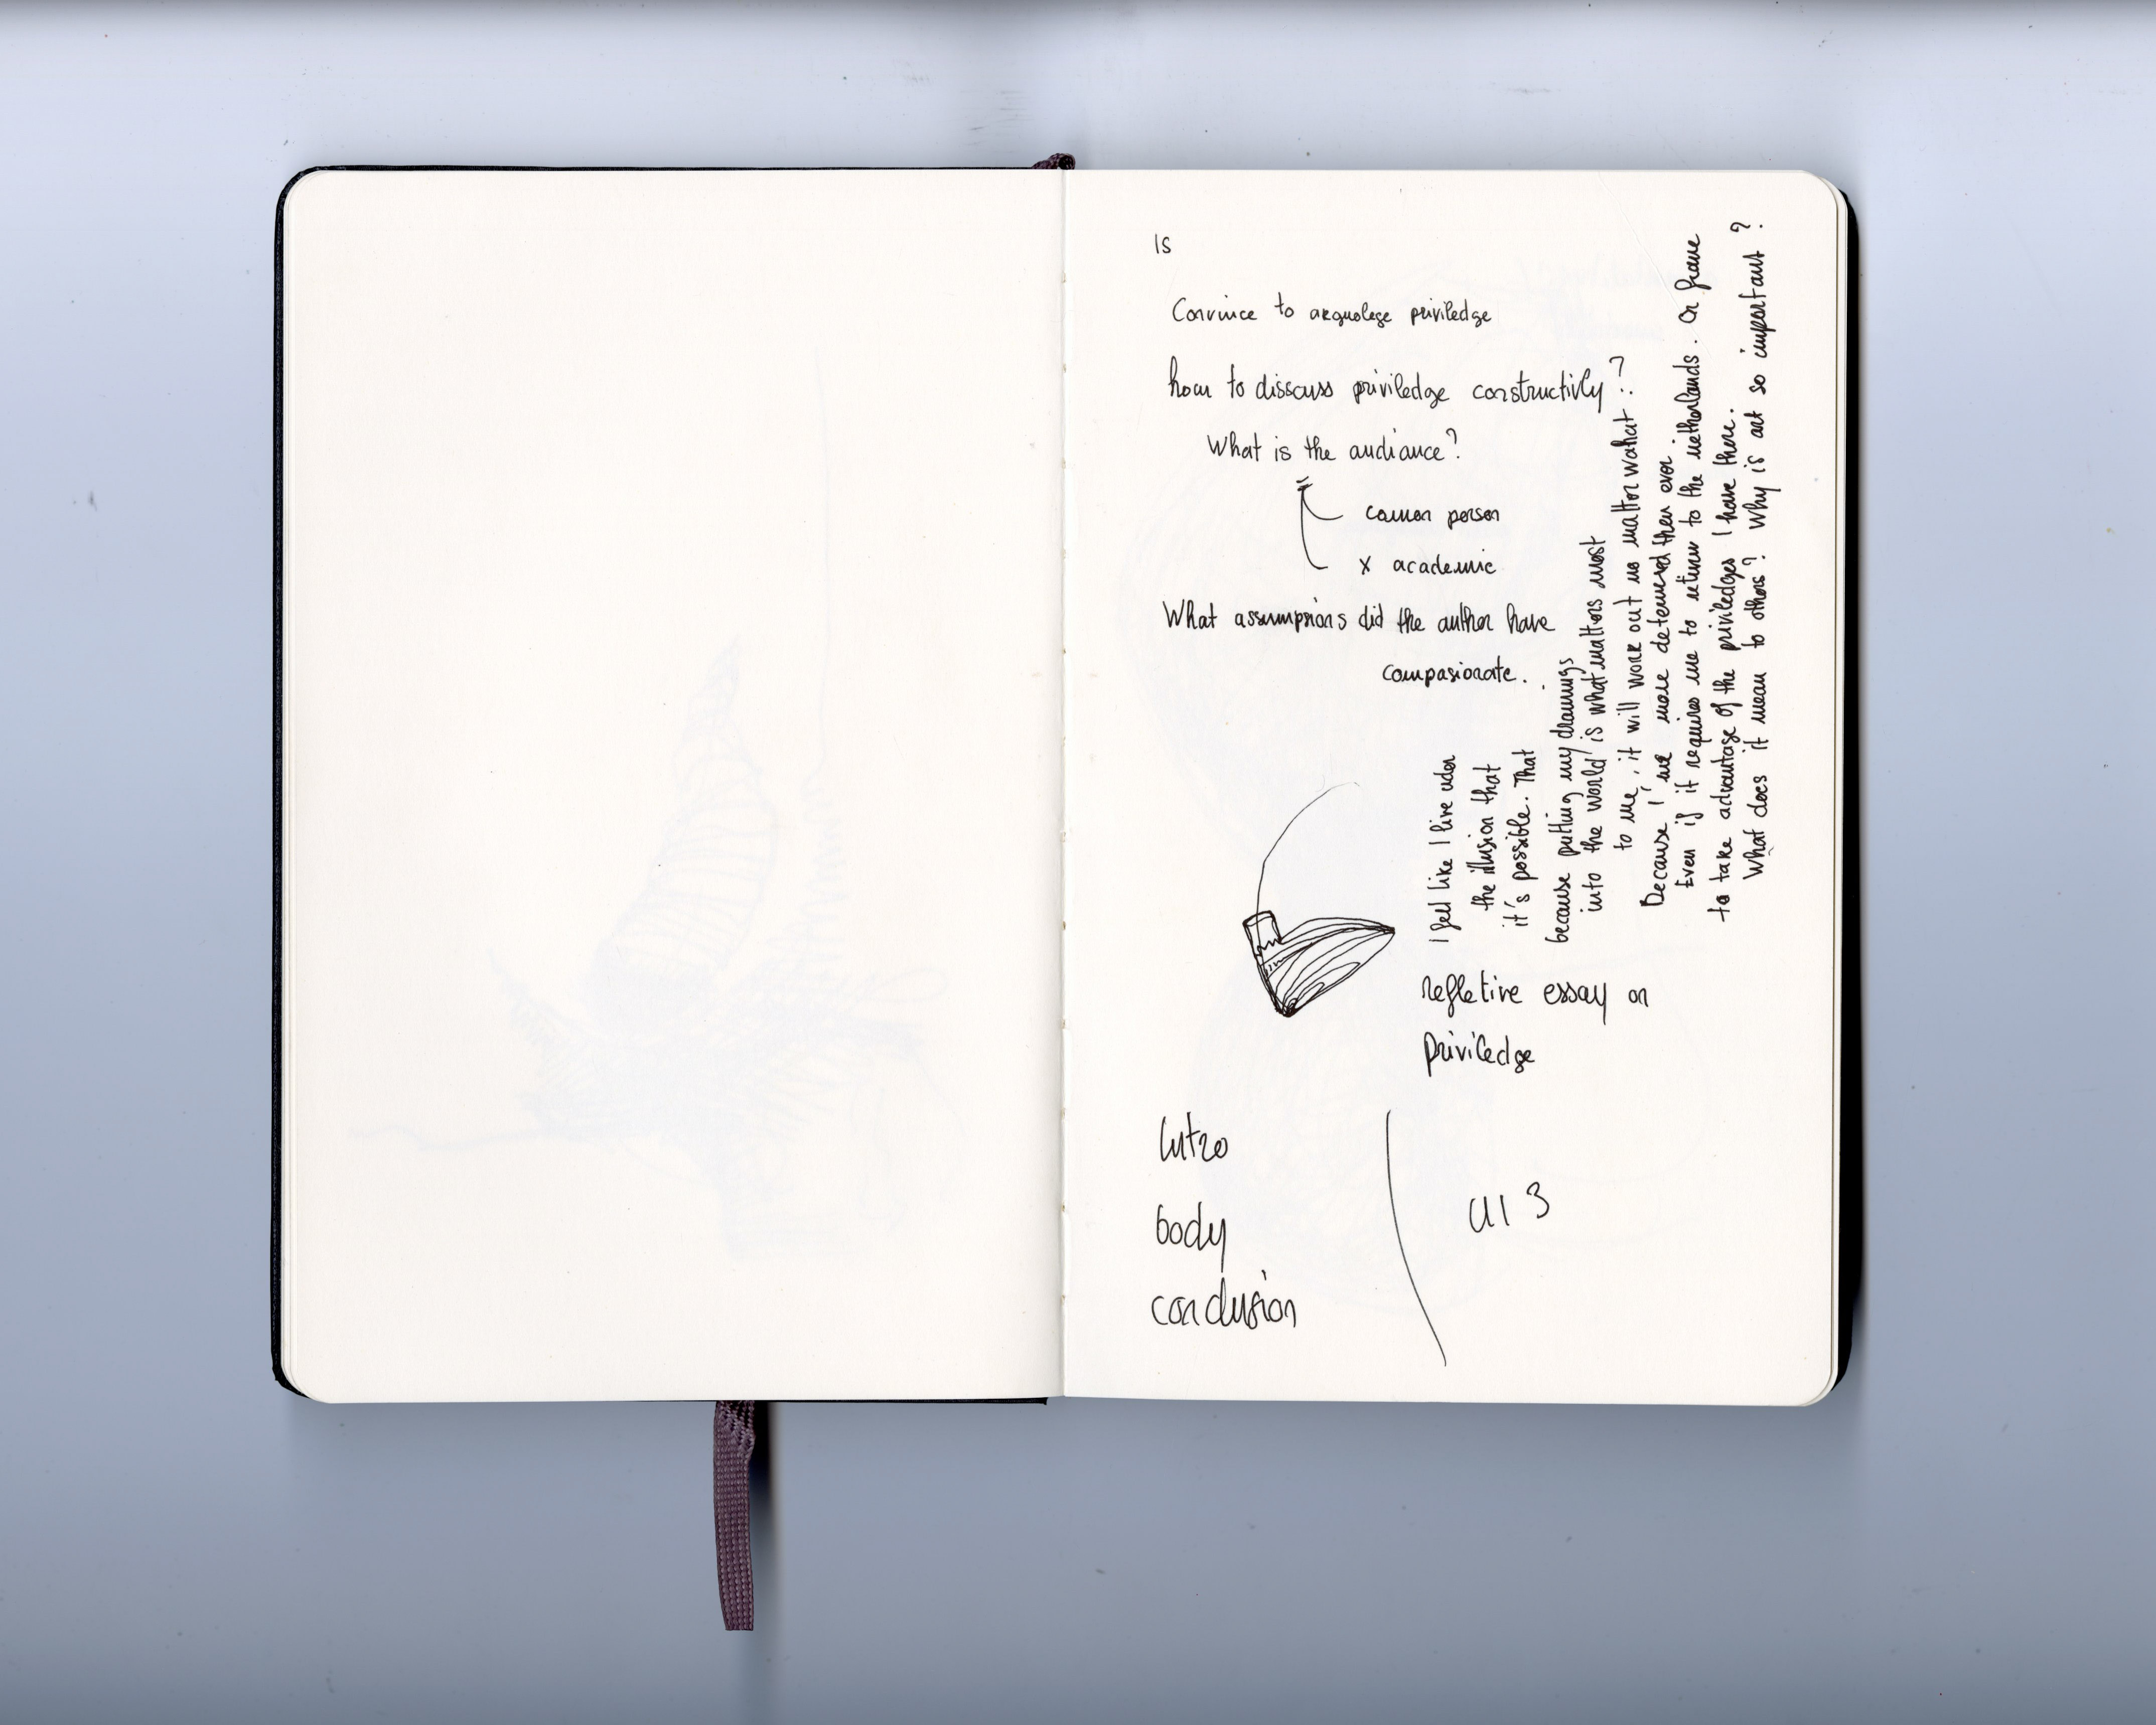 Is
Convince to aeguolege priviledge
how to disscuss priviledge constructivly?
What is the audiance?
comon person
x academic
What assumpsions did the author have
compasionate.
I feel like I live uder
the illusion that
it's possible. That
because putting my drawings
into the world is what mattors most
to me, it will work out no mattor wahat?
Because I'me more determined then ever.
Even if it requires me to return to the netherlands. Or
to take advantage of the priviledges I have there.
What does it mean to others? Why is art so important?
refletive essay on
priviledge
Intro
body
conclusion